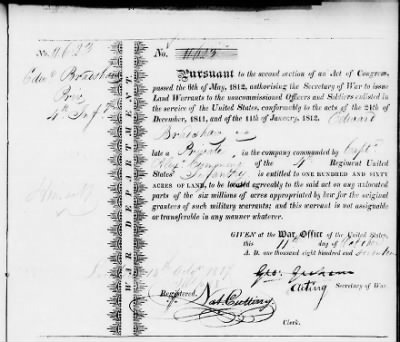 No. 4623
Edwd Bradshaw
Priv
4th Inft
WAR DEPARTMENT.
No. 4623
Pursuant to the second section of an Act of Congress,
passed the 6th of May, 1812, authorising the Secretary of War to issue
Land Warrants to the uncommissioned Officers and Soldiers enlisted in
the service of the United States, conformably to the acts of the 24th of
December, 1811, and of the 11th of January, 1812, Edward
Bradshaw
late a Private in the company commanded by Capt
of the 4th Regiment United
States' Infantry is entitled to ONE HUNDRED AND SIXTY
ACRES OF LAND, to be located agreeably to the said act on any unlocated
parts of the six millions of acres appropriated by law for the original
grantees of such military warrants; and this warrant is not assignable
or transferable in any manner whatever.
GIVEN at the War Office of the United States,
this 11th day of October
A. D. one thousand eight hundred and
Geo: Graham
Acting Secretary of War.
Registered,
Nat. Cutting
Clerk.